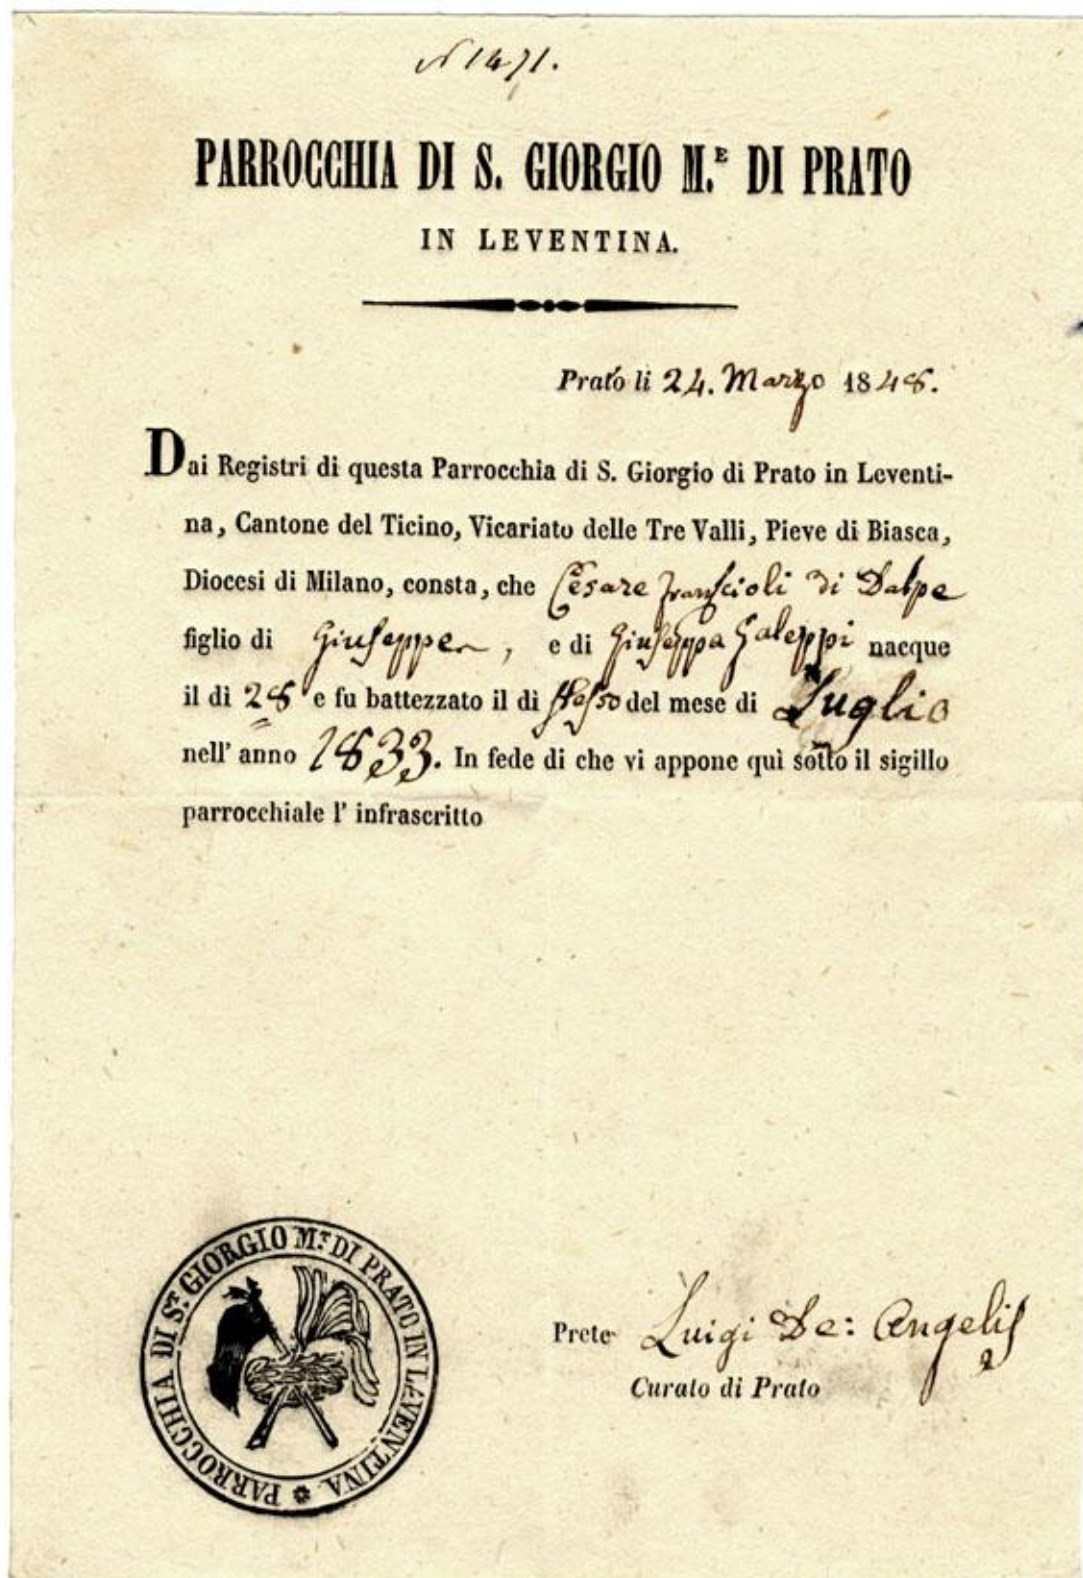 N 1471.
PARROCCHIA DI S. GIORGIO M.E DI PRATO
IN LEVENTINA.
Prato li 24. Marzo 1848.
Dai Registri di questa Parrocchia di S. Giorgio di Prato in Leventi-
na, Cantone del Ticino, Vicariato delle Tre Valli, Pieve di Biasca,
Diocesi di Milano, consta, che Cesare Franscioli di Dalpe
figlio di Giuseppe, e di Giuseppa Galeppi nacque
il di 28 e fu battezzato il di stesso del mese di Luglio
nell' anno 1833. In fede di che vi appone quì sotto il sigillo
parrocchiale l' infrascritto
Prete Luigi De: Angelis
Curato di Prato
PARROCCHIA DI S.T GIORGIO M.E DI PRATO IN LEVENTINA